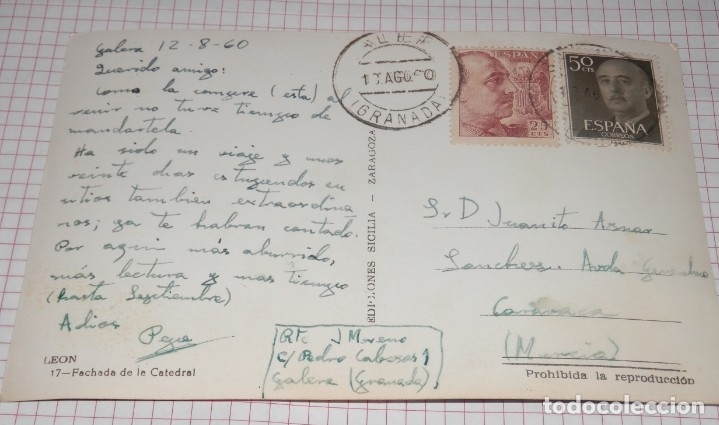 Galera 12-8-60
Querido amigo:
Como la compre (esta) al
venir no tuve tiempo de
mandartela.
Ha sido un viaje y unos
veinte dias estupendos en
sitios tambien extraordina
rios; ya te habran contado.
Por aqui más aburrido,
más lectura y mas tiempo
(hasta Septiembre)
Adios
Pepe
LEON
17—Fachada de la Catedral
EDICIONES SICILIA - ZARAGOZA
(GRANADA)
25
CTS
50
CTS
ESPAÑA
CORREOS
Sr D Juanito Aznar
Sanchez. Avda
Caravaca
(Murcia)
Rte J Moreno
C/ Pedro
Galera (Granada)
Prohibida la reproducción
todocoleccion.net